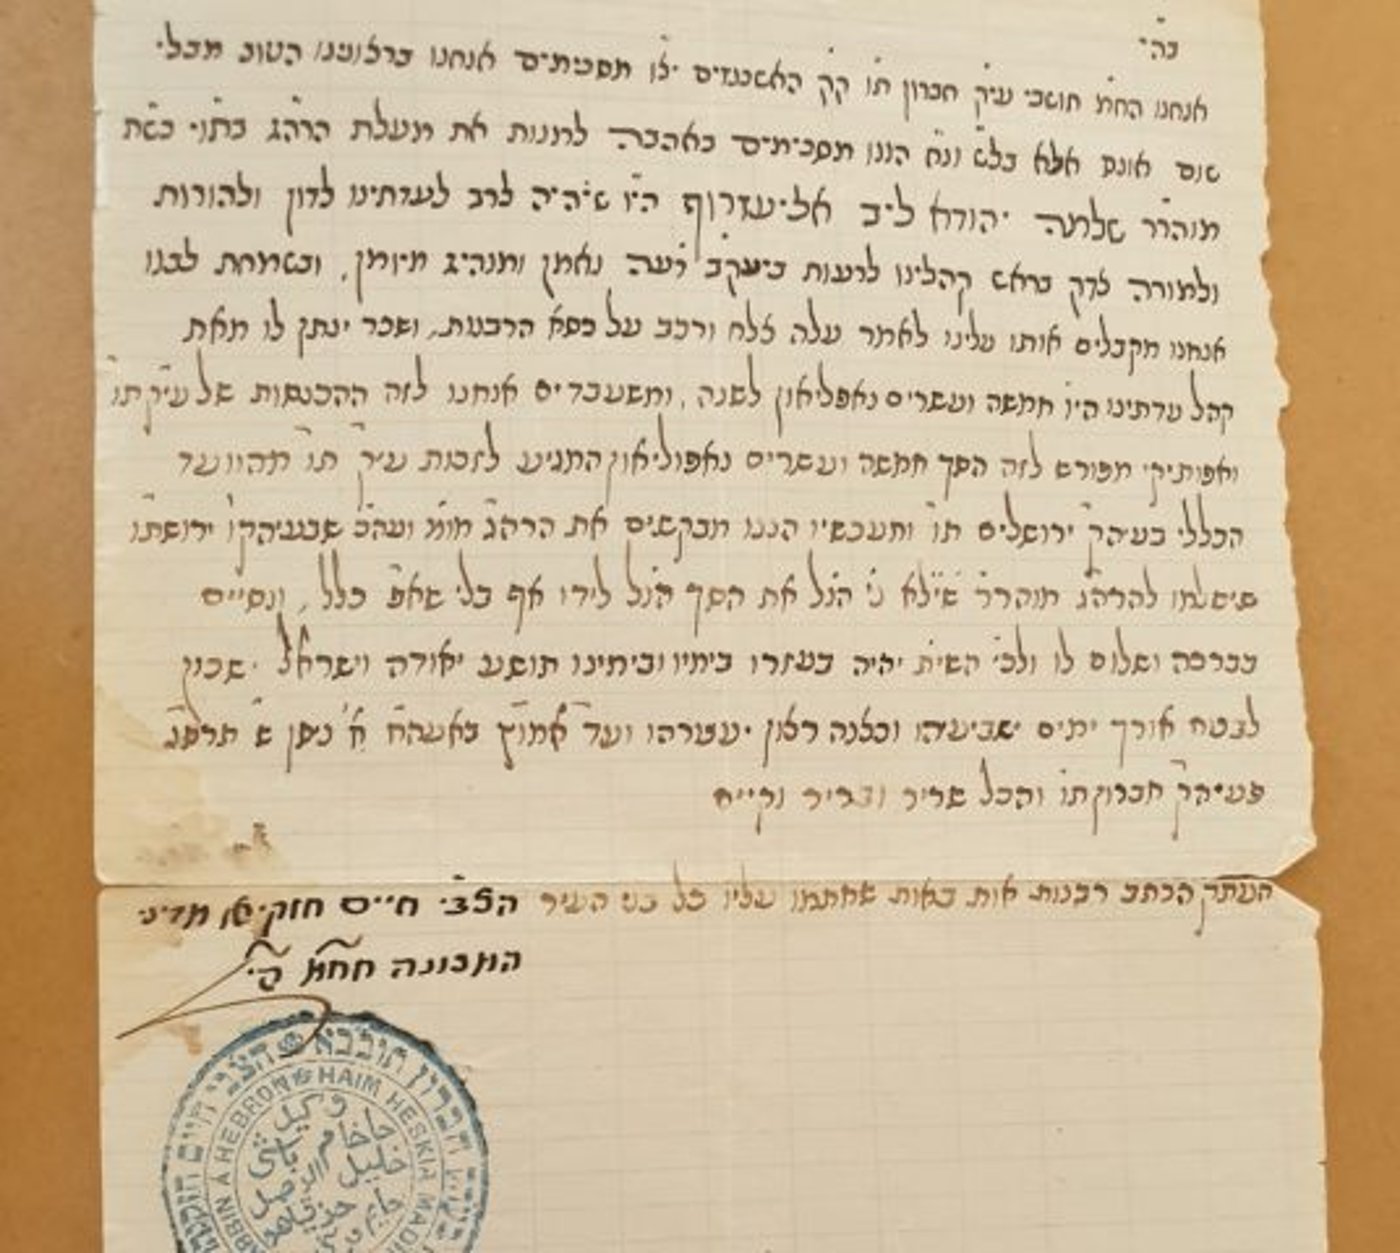 בה"י
אנחנו הח"מ תושבי עיה"ק חברון ת"ו ק"ק האשכנזים יצ"ו מסכימים אנחנו ברצוננו הטוב מבלי
שום אונס אלא בלש ונ"ח הננו מסכימים באהבה למנות את מעלת הרה"ג כמו' כש"ת
מוהר"ר שלמה יהודא ליב אלעזרוף הי"ו שיהיה לרב לעדתינו לדון ולהורות
ולמורה צדק בראש קהלינו לרעות ביעקב רעה נאמן ומנהיג מיומן, ובשמחת לבנו
אנחנו מקבלים אותו עלינו לאמר עלה צלח ורכב על כסא הרבנות, ושכר ינתן לו מאת
קהל עדתינו הי"ו חמשה ועשרים נאפליאון לשנה, ומשעבדים אנחנו לזה ההכנסות של עיק"ת ת"ו
ואפותיקי מפורש לזה הסך חמשה ועשרים נאפוליאון המגיע לזכות עיר"ק ת"ו מהוועד
הכללי בעיה"ק ירושלים ת"ו ומעכשיו הננו מבקשים את הרה"ג
שישלמו להרה"ג מוהרר הנ"ל את הסך הנ"ל לידו אף בלי שאפ כלל, ונסיים
בברכה ושלום לו ולכ"י השי"ת יהיה בעזרו בימיו ובימינו תושע יאודה וישראל ישכון
לבטח אורך ימים ישביעהו וכצנה רצון יעטרהו ועד אמוץ באעה"ח א' ניסן ש' תרס"ג
פעיה"ק חברון ת"ו והכל שריר ובריר וקיים
העתק הכתב רבנות אות באות שחתמו עליו כל בני העיר הצב"י חיים חזקיא מדיני
המכונה חח"מ ס"ט
חברון תובב"א הצבי חיים
RABBIN A HEBRON HAIM HESKIA MADINI